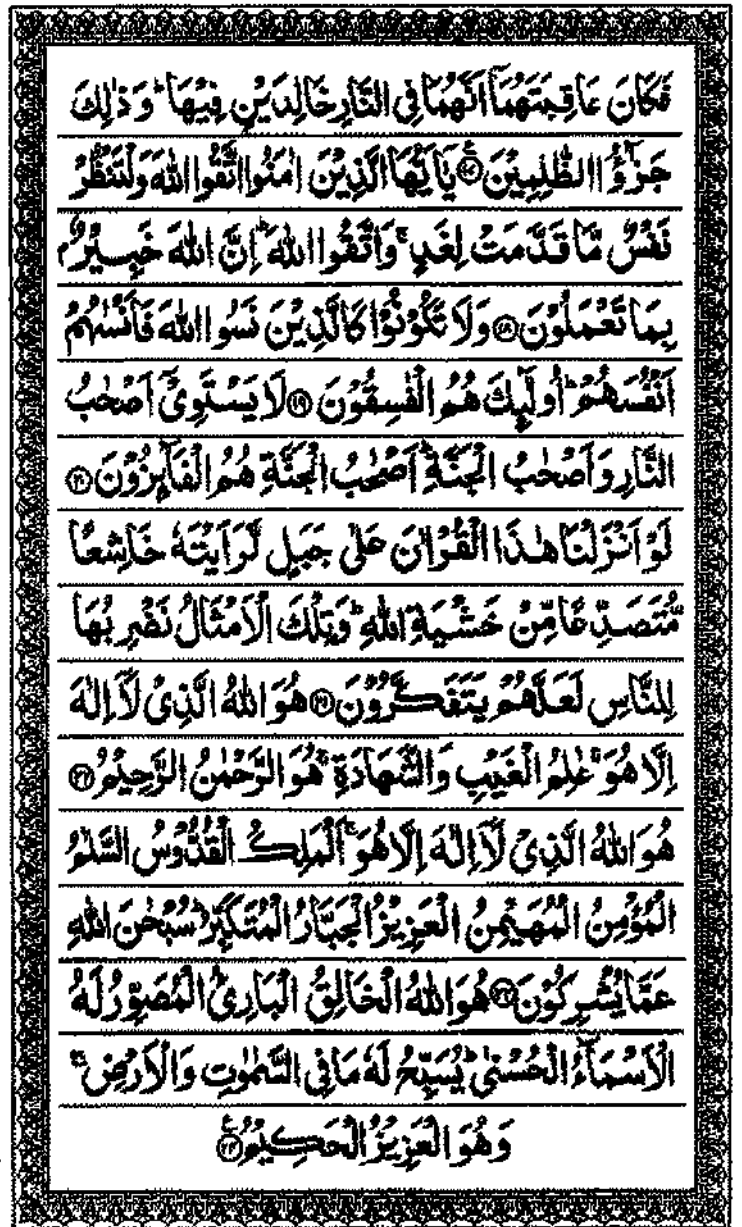 فَكَانَ عَاقِبَتَهُمَآ اَنَّهُمَا فِی النَّارِ خَالِدَیْنِ فِیْهَا ؕ وَ ذٰلِكَ
جَزٰٓؤُا الظّٰلِمِیْنَ ﴿۱۷﴾ یٰۤاَیُّهَا الَّذِیْنَ اٰمَنُوا اتَّقُوا اللّٰهَ وَلْتَنْظُرْ
نَفْسٌ مَّا قَدَّمَتْ لِغَدٍ ۚ وَاتَّقُوا اللّٰهَ ؕ اِنَّ اللّٰهَ خَبِیْرٌۢ
بِمَا تَعْمَلُوْنَ ﴿۱۸﴾ وَلَا تَكُوْنُوْا كَالَّذِیْنَ نَسُوا اللّٰهَ فَاَنْسٰىهُمْ
اَنْفُسَهُمْ ؕ اُولٰٓئِكَ هُمُ الْفٰسِقُوْنَ ﴿۱۹﴾ لَا یَسْتَوِیْۤ اَصْحٰبُ
النَّارِ وَاَصْحٰبُ الْجَنَّةِ ؕ اَصْحٰبُ الْجَنَّةِ هُمُ الْفَآئِزُوْنَ ﴿۲۰﴾
لَوْ اَنْزَلْنَا هٰذَا الْقُرْاٰنَ عَلٰی جَبَلٍ لَّرَاَیْتَهٗ خَاشِعًا
مُّتَصَدِّعًا مِّنْ خَشْیَةِ اللّٰهِ ؕ وَتِلْكَ الْاَمْثَالُ نَضْرِبُهَا
لِلنَّاسِ لَعَلَّهُمْ یَتَفَكَّرُوْنَ ﴿۲۱﴾ هُوَ اللّٰهُ الَّذِیْ لَاۤ اِلٰهَ
اِلَّا هُوَ ۚ عٰلِمُ الْغَیْبِ وَالشَّهَادَةِ ۚ هُوَ الرَّحْمٰنُ الرَّحِیْمُ ﴿۲۲﴾
هُوَ اللّٰهُ الَّذِیْ لَاۤ اِلٰهَ اِلَّا هُوَ ۚ اَلْمَلِكُ الْقُدُّوْسُ السَّلٰمُ
الْمُؤْمِنُ الْمُهَیْمِنُ الْعَزِیْزُ الْجَبَّارُ الْمُتَكَبِّرُ ؕ سُبْحٰنَ اللّٰهِ
عَمَّا یُشْرِكُوْنَ ﴿۲۳﴾ هُوَ اللّٰهُ الْخَالِقُ الْبَارِئُ الْمُصَوِّرُ لَهُ
الْاَسْمَآءُ الْحُسْنٰی ؕ یُسَبِّحُ لَهٗ مَا فِی السَّمٰوٰتِ وَالْاَرْضِ ۚ
وَهُوَ الْعَزِیْزُ الْحَكِیْمُ ﴿۲۴﴾